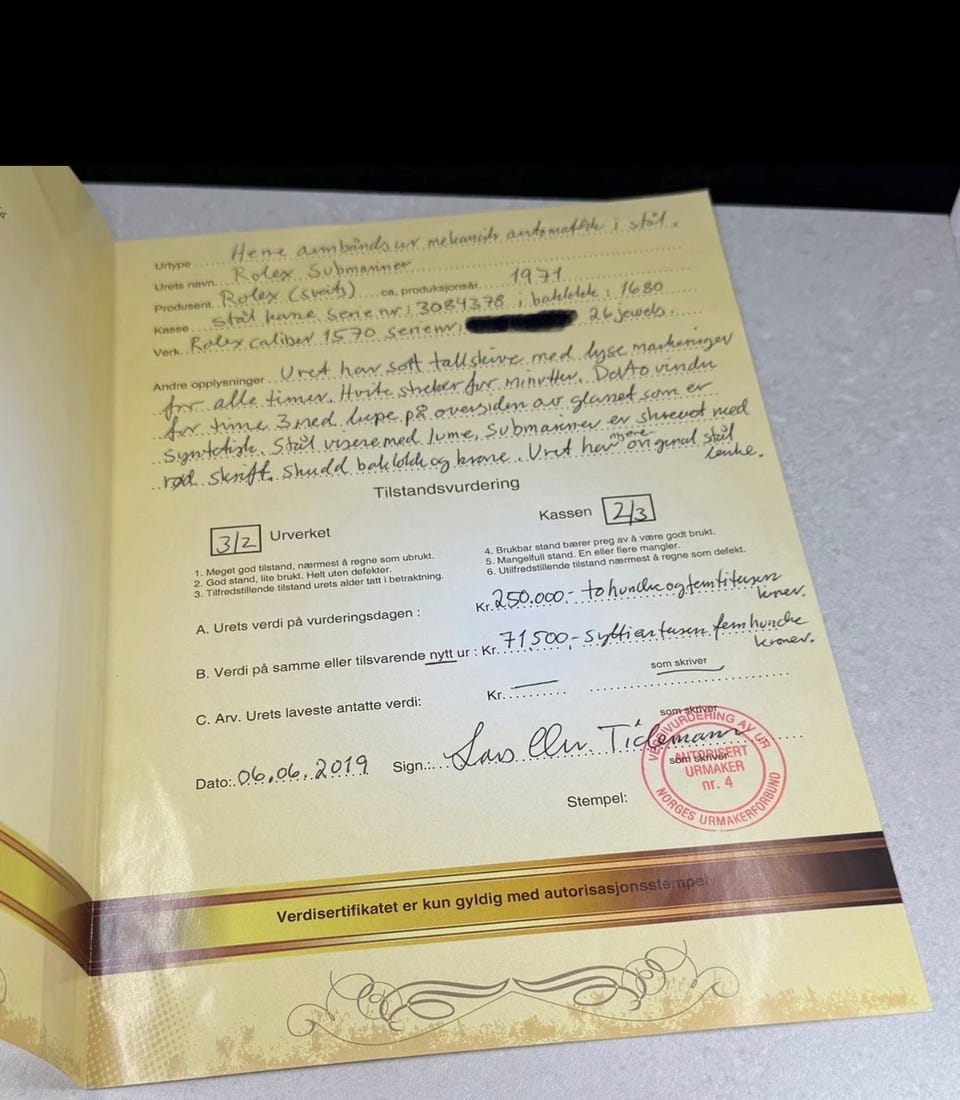 Urtype Herre armbåndsur mekanisk automatisk i stål.
Urets navn Rolex Submariner
Produsent Rolex (Sveits) ca. produksjonsår 1971
Kasse stål kasse serie nr: 3084378 i baklokk: 1680
Verk Rolex caliber 1570 serienr: 26 jewels.
Andre opplysninger Uret har sort tallskive med lyse markeringer
for alle timer. Hvite streker for minutter. Dato vindu
for time 3 med lupe på oversiden av glasset som er
syntetisk. Stål visere med lume, Submariner er skrevet med
rød skrift. Skrudd baklokk og krone. Uret har original stål
lenke.
Tilstandsvurdering
3/2 Urverket
Kassen 2/3
1. Meget god tilstand, nærmest å regne som ubrukt.
2. God stand, lite brukt. Helt uten defekter.
3. Tilfredstillende tilstand urets alder tatt i betraktning.
4. Brukbar stand bærer preg av å være godt brukt.
5. Mangelfull stand. En eller flere mangler.
6. Utilfredstillende tilstand nærmest å regne som defekt.
A. Urets verdi på vurderingsdagen : Kr. 250.000.- to hundre og femti tusen
kroner.
B. Verdi på samme eller tilsvarende nytt ur : Kr. 71,500,- syttien tusen fem hundre
kroner.
som skriver
C. Arv. Urets laveste antatte verdi: Kr.
som skriver
Dato: 06.06.2019 Sign.: Tidemann
som skriver
VERDIVURDERING AV UR
AUTORISERT
URMAKER
nr. 4
NORGES URMAKERFORBUND
Stempel:
Verdisertifikatet er kun gyldig med autorisasjonsstempel